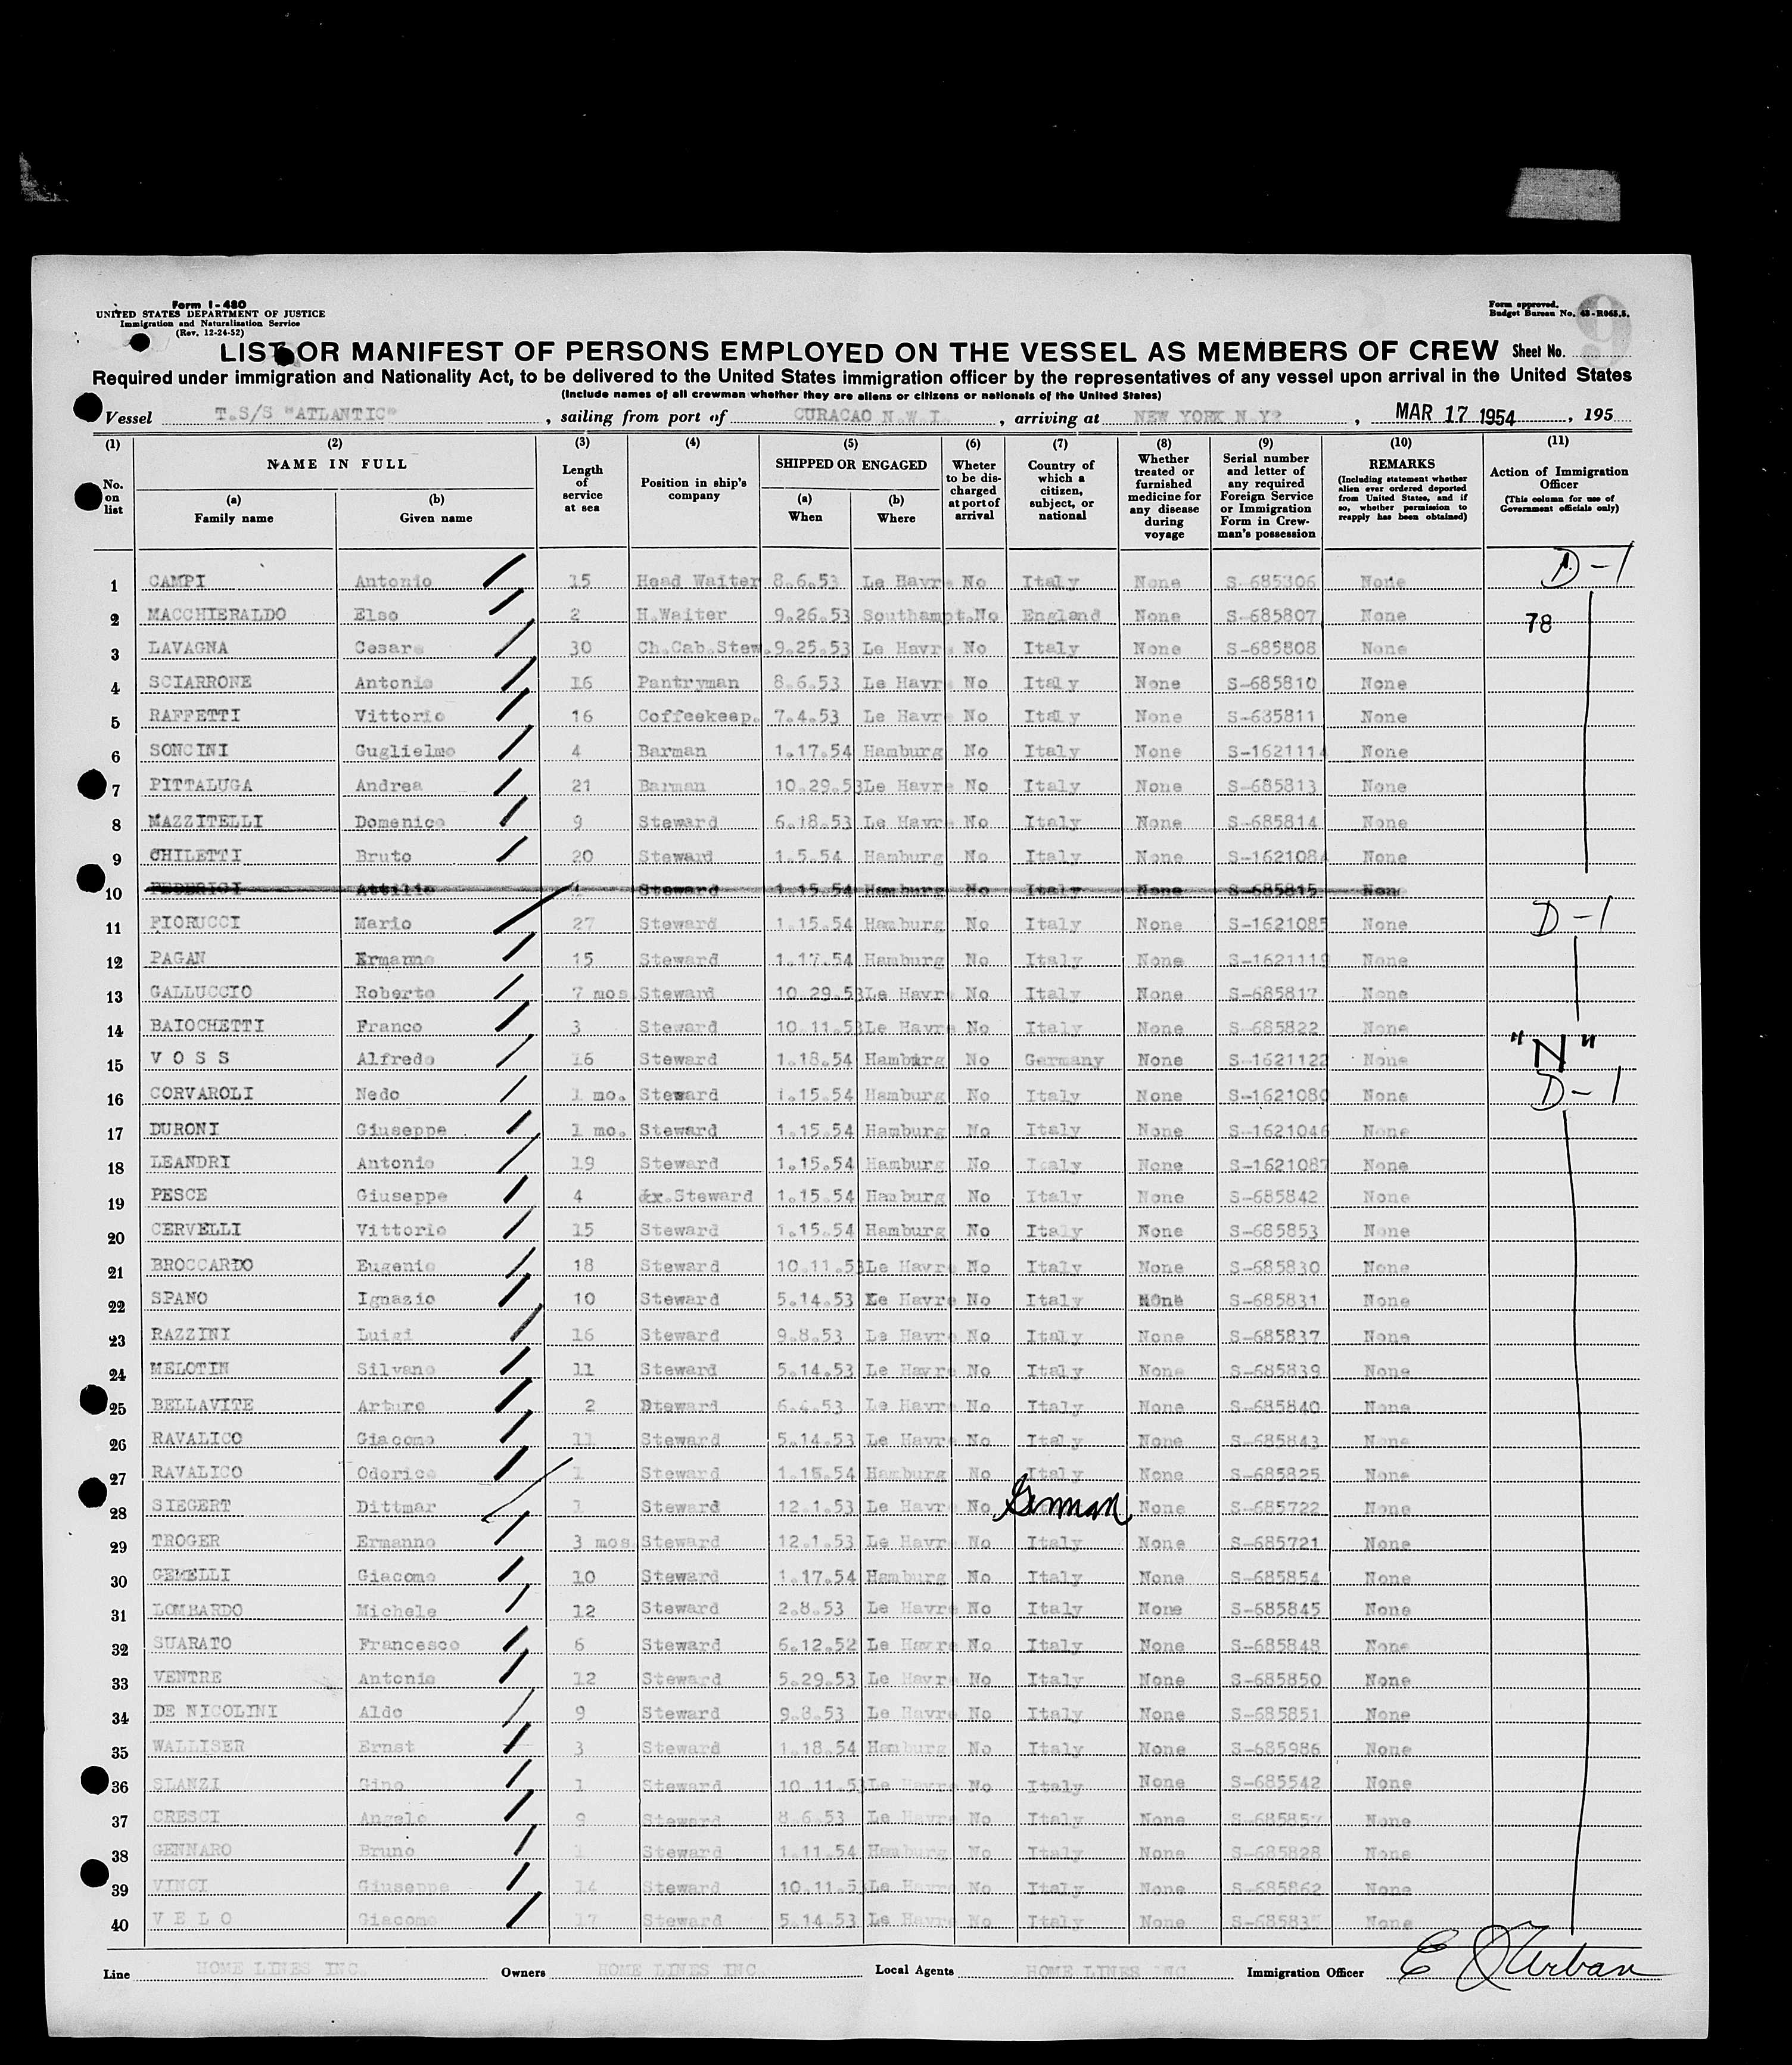 Form I-480
UNITED STATES DEPARTMENT OF JUSTICE
Immigration and Naturalization Service
(Rev. 12-24-52)
Form approved.
Budget Bureau No. 43-R065.5.
9
LIST OR MANIFEST OF PERSONS EMPLOYED ON THE VESSEL AS MEMBERS OF CREW Sheet No.
Required under immigration and Nationality Act, to be delivered to the United States immigration officer by the representatives of any vessel upon arrival in the United States
(Include names of all crewman whether they are aliens or citizens or nationals of the United States)
Vessel T.S/S "ATLANTIC" , sailing from port of CURACAO N.W.I. , arriving at NEW YORK N.Y? , MAR 17 1954 , 195
(1) (2) (3) (4) (5) (6) (7) (8) (9) (10) (11)
No. on list
NAME IN FULL
(a) Family name
(b) Given name
Length of service at sea
Position in ship's company
SHIPPED OR ENGAGED
(a) When
(b) Where
Wheter to be discharged at port of arrival
Country of which a citizen, subject, or national
Whether treated or furnished medicine for any disease during voyage
Serial number and letter of any required Foreign Service or Immigration Form in Crewman's possession
REMARKS
(Including statement whether alien ever ordered deported from United States, and if so, whether permission to reapply has been obtained)
Action of Immigration Officer
(This column for use of Government officials only)
1 CAMPI Antonio 15 Head Waiter 8.6.53 Le Havr No Italy None S-685306 None D-1
2 MACCHIERALDO Elso 2 H.Waiter 9.26.53 Southampt.No England None S-685807 None 78
3 LAVAGNA Cesare 30 Ch.Cab.Stew.9.25.53 Le Havr No Italy None S-685808 None
4 SCIARRONE Antonio 16 Pantryman 8.6.53 Le Havr No Italy None S-685810 None
5 RAFFETTI Vittorio 16 Coffeekeep. 7.4.53 Le Havr No Italy None S-685811 None
6 SONCINI Guglielmo 4 Barman 1.17.54 Hamburg No Italy None S-1621114 None
7 PITTALUGA Andrea 21 Barman 10.29.53 Le Havre No Italy None S-685813 None
8 MAZZITELLI Domenico 9 Steward 6.18.53 Le Havre No Italy None S-685814 None
9 CHILETTI Bruto 20 Steward 1.5.54 Hamburg No Italy None S-1621084 None
10 FEDERICI Attilio Steward 1.15.54 Hamburg No Italy None S-685815 Non
11 FIORUCCI Mario 27 Steward 1.15.54 Hamburg No Italy None S-1621085 None D-1
12 PAGAN Ermanno 15 Steward 1.17.54 Hamburg No Italy None S-1621119 None
13 GALLUCCIO Roberto 7 mos Steward 10.29.53 Le Havre No Italy None S-685817 None
14 BAIOCHETTI Franco 3 Steward 10.11.53 Le Havre No Italy None S-685822 None
15 V O S S Alfredo 16 Steward 1.18.54 Hamburg No Germany None S-1621122 None "N"
16 CORVAROLI Nedo 1 mo. Steward 1.15.54 Hamburg No Italy None S-1621080 None D-1
17 DURONI Giuseppe 1 mo. Steward 1.15.54 Hamburg No Italy None S-1621046 None
18 LEANDRI Antonio 19 Steward 1.15.54 Hamburg No Italy None S-1621087 None
19 PESCE Giuseppe 4 Steward 1.15.54 Hamburg No Italy None S-685842 None
20 CERVELLI Vittorio 15 Steward 1.15.54 Hamburg No Italy None S-685853 None
21 BROCCARDO Eugenio 18 Steward 10.11.53 Le Havre No Italy None S-685830 None
22 SPANO Ignazio 10 Steward 5.14.53 Le Havre No Italy None S-685831 None
23 RAZZINI Luigi 16 Steward 9.8.53 Le Havre No Italy None S-685837 None
24 MELOTIN Silvano 11 Steward 5.14.53 Le Havre No Italy None S-685839 None
25 BELLAVITE Arturo 2 Dteward 6.4.53 Le Havre No Italy None S-685840 None
26 RAVALICO Giacomo 11 Steward 5.14.53 Le Havre No Italy None S-685843 None
27 RAVALICO Odorico 1 Steward 1.15.54 Hamburg No Italy None S-685825 None
28 SIEGERT Dittmar 1 Steward 12.1.53 Le Havr No German None S-685722 None
29 TROGER Ermanno 3 mos Steward 12.1.53 Le Havr No Italy None S-685721 None
30 GEMELLI Giacomo 10 Steward 1.17.54 Hamburg No Italy None S-685854 None
31 LOMBARDO Michele 12 Steward 2.8.53 Le Havre No Italy None S-685845 None
32 SUARATO Francesco 6 Steward 6.12.52 Le Havre No Italy None S-685848 None
33 VENTRE Antonio 12 Steward 5.29.53 Le Havr No Italy None S-685850 None
34 DE NICOLINI Aldo 9 Steward 9.8.53 Le Havre No Italy None S-685851 None
35 WALLISER Ernst 3 Steward 1.18.54 Hamburg No Italy None S-685986 None
36 SLANZI Gino 1 Steward 10.11.53 Le Havre No Italy None S-685542 None
37 CRESCI Angelo 9 Steward 8.6.53 Le Havre No Italy None None
38 GENNARO Bruno 1 Steward 1.11.54 Hamburg No Italy None S-685828 None
39 VINCI Giuseppe 14 Steward 10.11.53 Le Havre No Italy None S-685862 None
40 V E L O Giacomo 17 Steward 5.14.53 Le Havr No Italy None None
Line HOME LINES INC. Owners HOME LINES INC Local Agents HOME LINES INC Immigration Officer E Urban